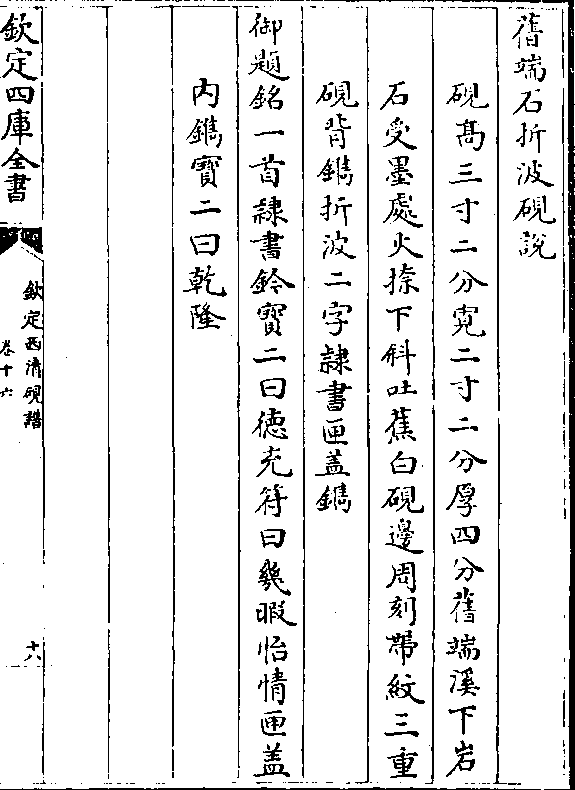 舊端石折波硯說
硯髙三寸二分寛二寸二分厚四分舊端溪下岩
石受墨處火捺下斜吐蕉白硯邊周刻帶紋三重
硯背鐫折波二字隸書匣盖鐫
御題銘一首隸書鈐寳二曰徳充符曰幾暇怡情匣盖
内鐫寳二曰乾隆
欽定四庫全書
欽定西清硯譜
卷十六
十八